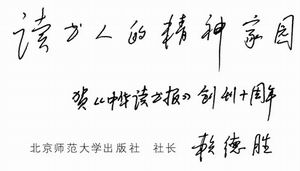 读书人的精神家园
贺《中华读书报》创刊十周年
北京师范大学出版社 社长 赖德胜